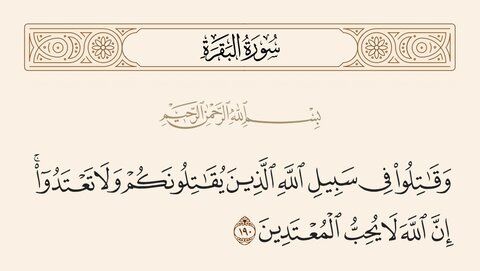 سُورَةُ البَقَرَةِ
بِسْمِ اللَّهِ الرَّحْمَٰنِ الرَّحِيمِ
وَقَٰتِلُوا۟ فِى سَبِيلِ ٱللَّهِ ٱلَّذِينَ يُقَٰتِلُونَكُمْ وَلَا تَعْتَدُوٓا۟ ۚ
إِنَّ ٱللَّهَ لَا يُحِبُّ ٱلْمُعْتَدِينَ ١٩٠